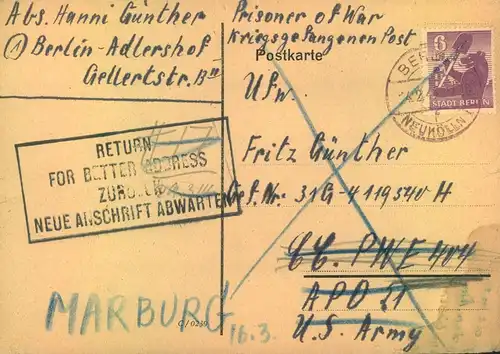 Abs. Hanni Günther
① Berlin-Adlershof
Gellertstr.
Prisoner of War
Kriegsgefangenen Post
Postkarte
6
STADT BERLIN
BERLIN
NEUKÖLLN
Ufw.
Fritz Günther
Gef. Nr: 31G-4119340 H
CC. PWE 404
APO 21
U.S. Army
RETURN
FOR BETTER ADDRESS
ZURÜCK
NEUE ANSCHRIFT ABWARTEN
MARBURG
16.3.
C/0239